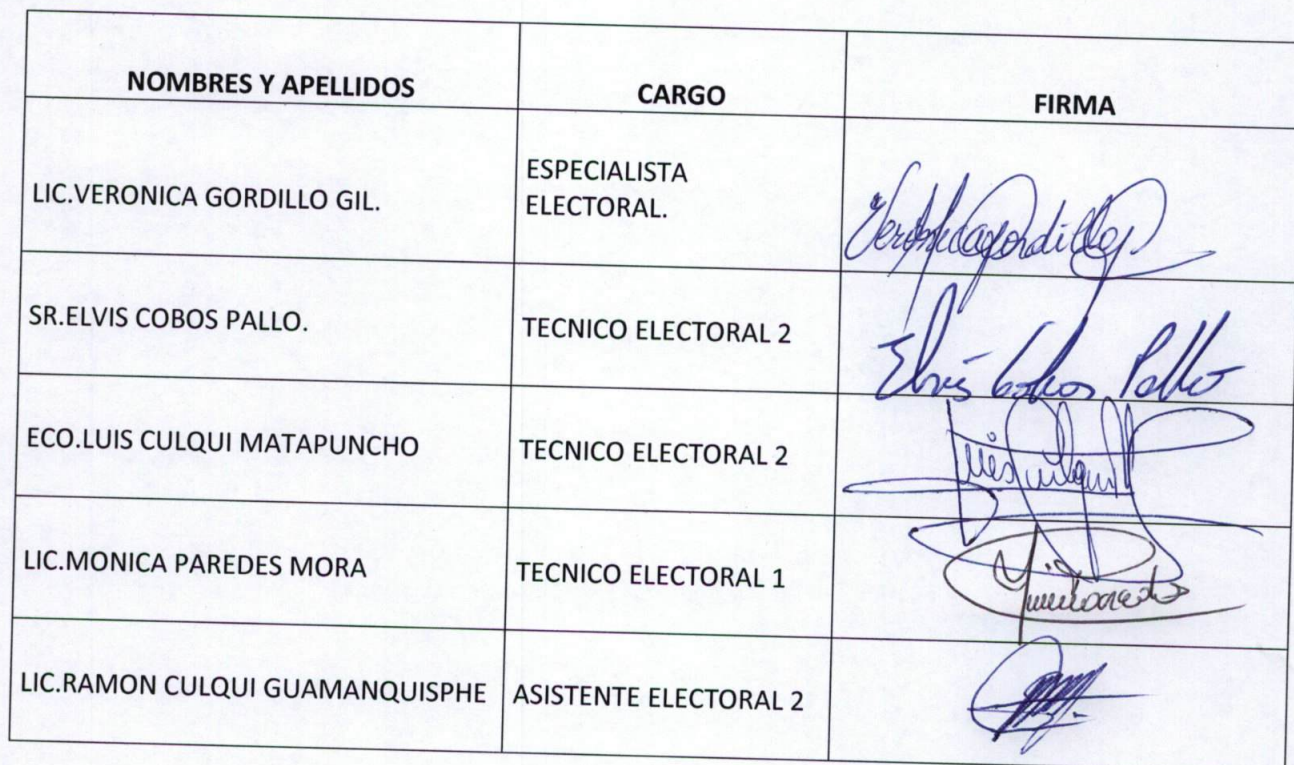 NOMBRES Y APELLIDOS CARGO FIRMA
LIC.VERONICA GORDILLO GIL. ESPECIALISTA
ELECTORAL.
Veronica Gordillo G.
SR.ELVIS COBOS PALLO. TECNICO ELECTORAL 2 Elvis Cobos Pallo
ECO.LUIS CULQUI MATAPUNCHO TECNICO ELECTORAL 2 Luis Culqui M
LIC.MONICA PAREDES MORA TECNICO ELECTORAL 1
LIC.RAMON CULQUI GUAMANQUISPHE ASISTENTE ELECTORAL 2